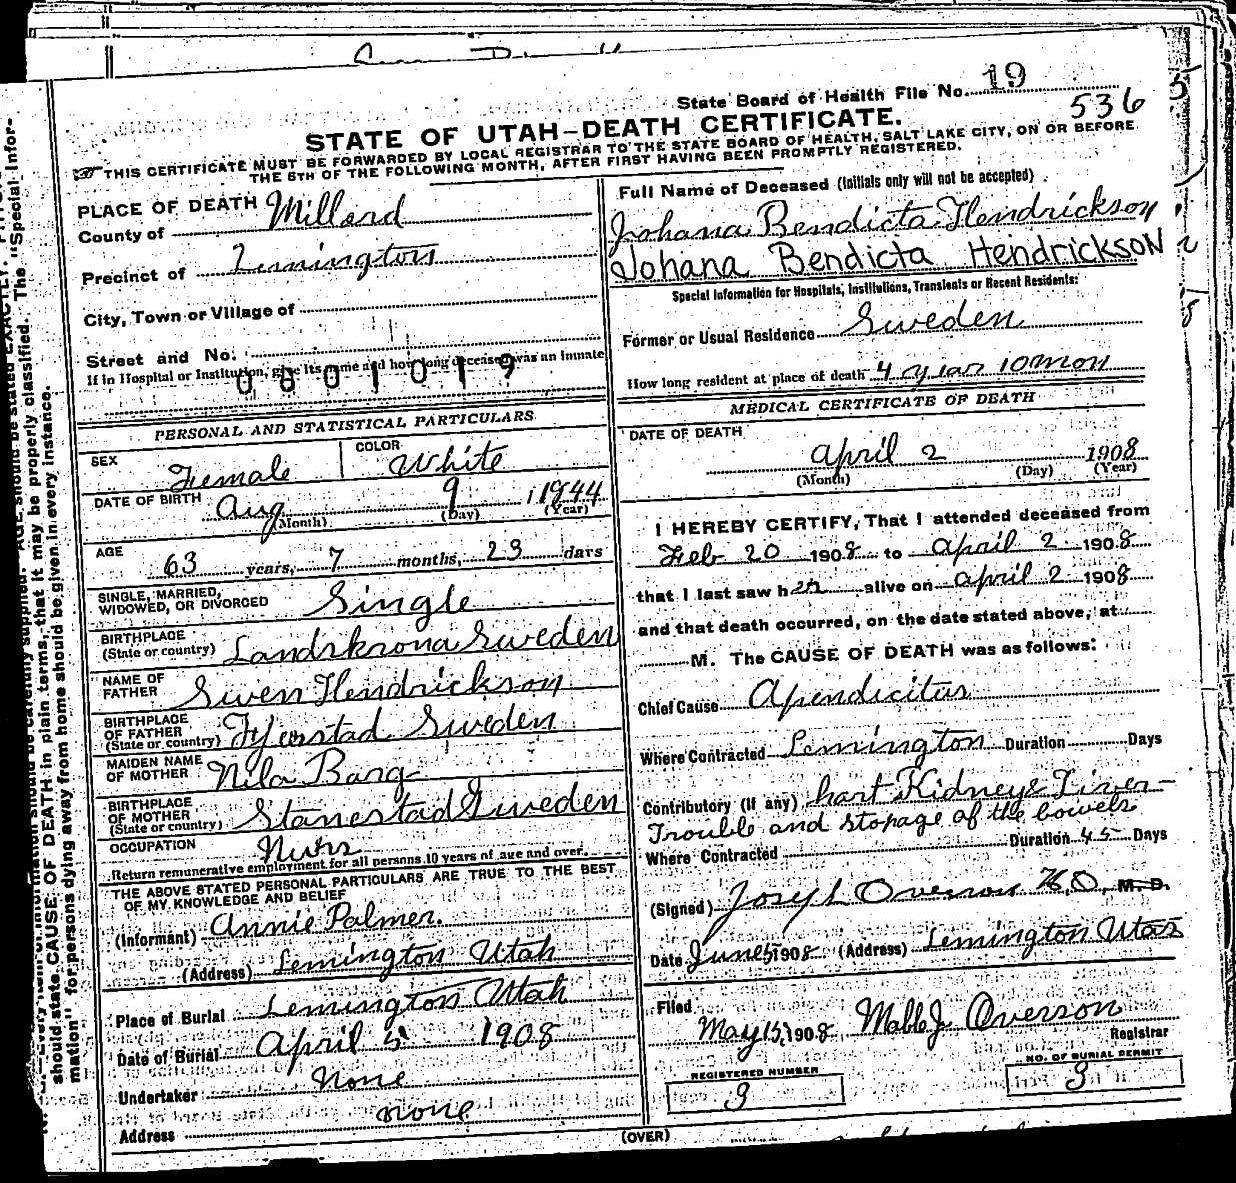 State Board of Health File No. 19
536
STATE OF UTAH—DEATH CERTIFICATE.
THIS CERTIFICATE MUST BE FORWARDED BY LOCAL REGISTRAR TO THE STATE BOARD OF HEALTH, SALT LAKE CITY, ON OR BEFORE
THE 5TH OF THE FOLLOWING MONTH, AFTER FIRST HAVING BEEN PROMPTLY REGISTERED.
PLACE OF DEATH
County of Millard
Precinct of Lemington
City, Town or Village of
Street and No.
If in Hospital or Institution, give its name and how long deceased was an inmate
0801019
PERSONAL AND STATISTICAL PARTICULARS
SEX Female COLOR White
DATE OF BIRTH Aug 9 1844
(Month) (Day) (Year)
AGE 63 years, 7 months, 23 days
SINGLE, MARRIED,
WIDOWED, OR DIVORCED Single
BIRTHPLACE
(State or country) Landskrona Sweden
NAME OF
FATHER Swen Hendrickson
BIRTHPLACE
OF FATHER
(State or country) Sweden
MAIDEN NAME
OF MOTHER Nila Barg
BIRTHPLACE
OF MOTHER
(State or country) Stanestad Sweden
OCCUPATION Nurs
Return remunerative employment for all persons 10 years of age and over.
THE ABOVE STATED PERSONAL PARTICULARS ARE TRUE TO THE BEST
OF MY KNOWLEDGE AND BELIEF
(Informant) Annie Palmer.
(Address) Lemington Utah
Place of Burial Lemington Utah
Date of Burial April 5 1908
Undertaker None
Address none
Full Name of Deceased (Initials only will not be accepted)
Johana Bendicta Hendrickson
Johana Bendicta Hendrickson
Special Information for Hospitals, Institutions, Transients or Recent Residents:
Former or Usual Residence Sweden
How long resident at place of death 4 year 10 mon
MEDICAL CERTIFICATE OF DEATH
DATE OF DEATH
April 2 1908
(Month) (Day) (Year)
I HEREBY CERTIFY, That I attended deceased from
Feb 20 1908 to April 2 1908
that I last saw h er alive on April 2 1908
and that death occurred, on the date stated above, at
M. The CAUSE OF DEATH was as follows:
Chief Cause Apendicitus
Where Contracted Lemington Duration Days
Contributory (if any) hart Kidney & Liver
Trouble and stopage of the bowels
Where Contracted Duration 45 Days
(Signed) Joseph Overson H.O. M. D.
Date June 5 1908 (Address) Lemington Utas
Filed
May 15, 1908 Mable J Overson
Registrar
REGISTERED NUMBER
3
NO. OF BURIAL PERMIT
3
(OVER)
should state CAUSE OF DEATH in plain terms, that it may be properly classified. The "Special Infor-
mation" for persons dying away from home should be given in every instance.